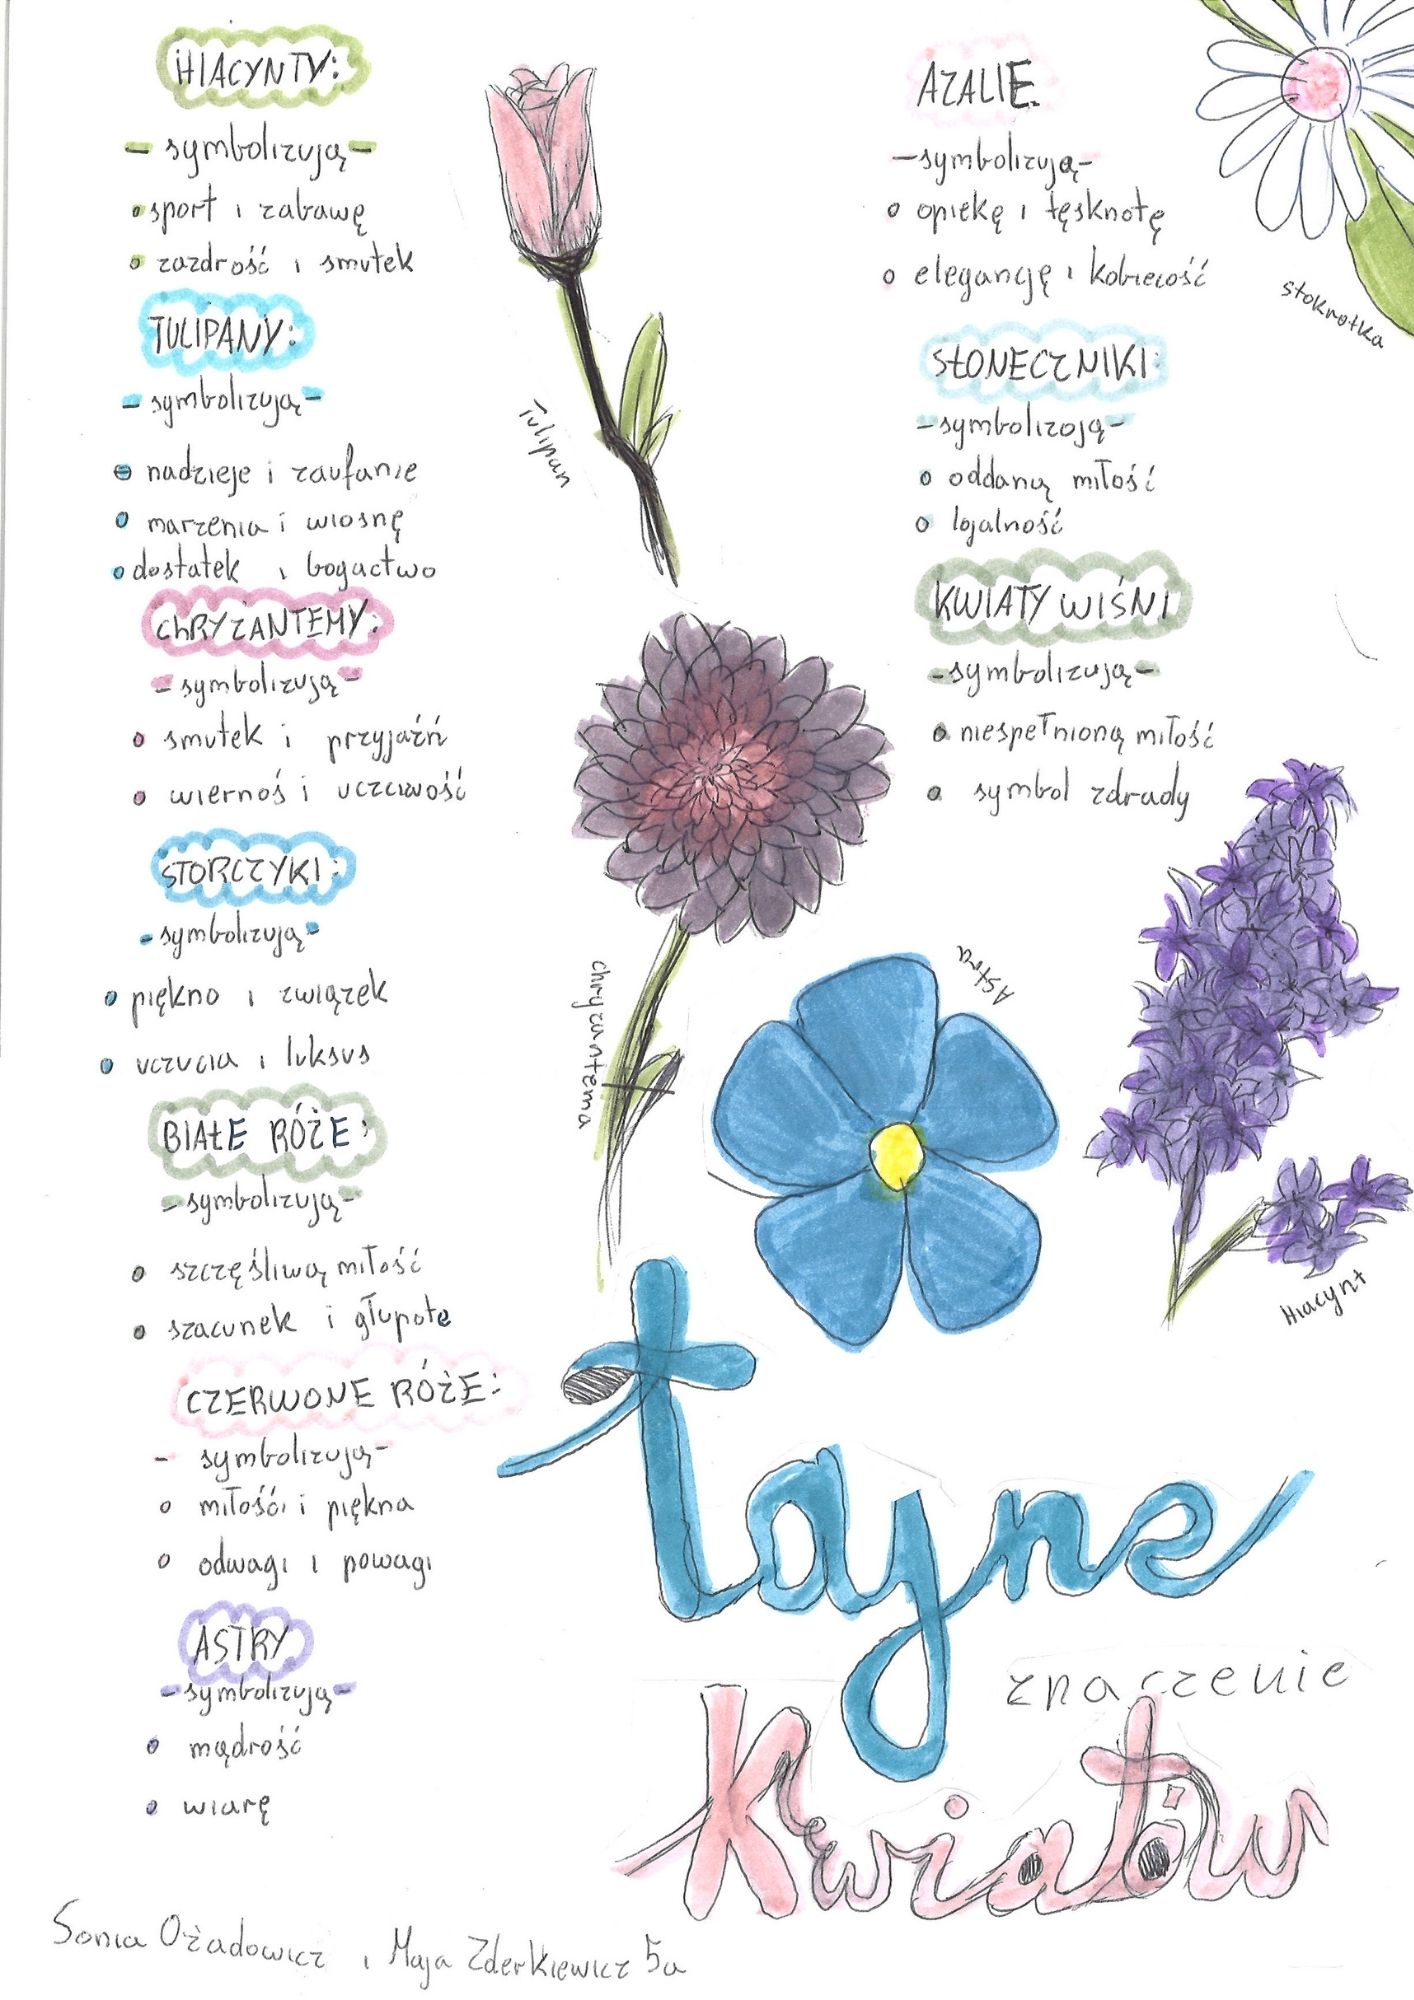 HIACYNTY:
- symbolizują -
sport i zabawę
zazdrość i smutek
TULIPANY:
- symbolizują -
nadzieje i zaufanie
marzenia i wiosnę
dostatek i bogactwo
ChRYZANTEMY:
- symbolizują -
smutek i przyjaźń
wiernoś i uczciwość
STORCZYKI:
- symbolizują -
piękno i związek
uczucia i luksus
BIAŁE RÓŻE:
- symbolizują -
szczęśliwą miłość
szacunek i głupote
CZERWONE RÓŻE:
- symbolizują -
miłości i piękna
odwagi i powagi
ASTRY
- symbolizują -
mądrość
wiarę
Sonia Ożadowicz i Maja Zderkiewicz 5a
Tulipan
chryzantema
Astra
AZALIE
- symbolizują -
opiekę i tęsknotę
elegancję i kobiecość
SŁONECZNIKI:
- symbolizoją -
oddaną miłość
lojalność
KWIATY WIŚNI
- symbolizują -
niespełnioną miłość
symbol zdrady
stokrotka
Hiacynt
tajne
znaczenie
Kwiatów